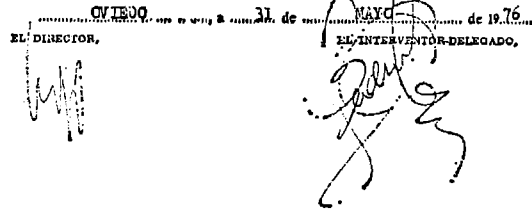 OVIEDO, a 31 de MAYO de 19.76
EL DIRECTOR,
EL INTERVENTOR-DELEGADO,